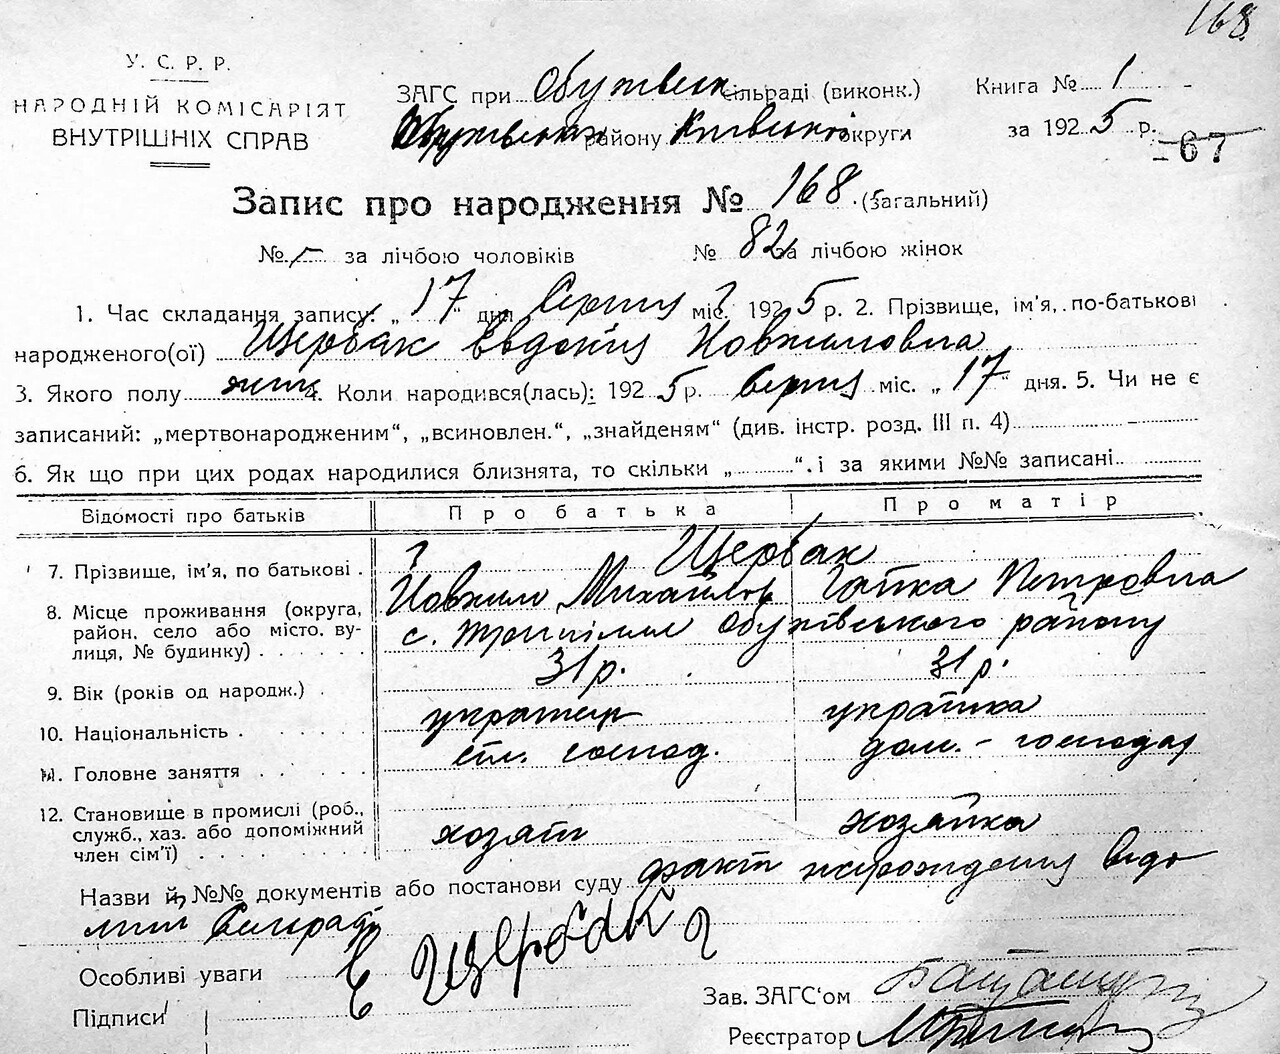 168
У. С. Р. Р.
НАРОДНІЙ КОМІСАРІЯТ
ВНУТРІШНІХ СПРАВ
ЗАГС при Сільраді (виконк.)
району Київської округи
Книга № 1
за 1925 р.
67
Запис про народження № 168 (загальний)
№ — за лічбою чоловіків № 82 за лічбою жінок
1. Час складання запису: „17“ дня Серпня міс. 1925 р. 2. Прізвище, ім'я, по-батькові
народженого(ої) Щербак Євдокія Йовхимовна
3. Якого полу жін. 4. Коли народився(лась): 1925 р. Серпня міс. „17“ дня. 5. Чи не є
записаний: „мертвонародженим“, „всиновлен.“, „знайденям“ (див. інстр. розд. III п. 4) -
6. Як що при цих родах народилися близнята, то скільки „ “. і за якими №№ записані
Відомості про батьків Про батька Про матір
7. Прізвище, ім'я, по батькові . Щербак
Йовхим Михайлов Гапка Петровна
8. Місце проживання (округа,
район, село або місто, ву-
лиця, № будинку) с. Трипілля Обухівського району
9. Вік (років од народж.) . 31 р. 31 р.
10. Національність . українець українка
11. Головне заняття сіл. господ. дом. - господар
12. Становище в промислі (роб.,
служб., хаз. або допоміжний
член сім'ї) хозяїн хозяйка
Назви й №№ документів або постанови суду факт нарождения відо
мий Сільраді
Особливі уваги Щербак
Підписи
Зав. ЗАГС'ом
Реєстратор